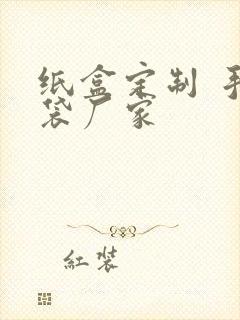 纸盒定制 手
袋厂家
紅装